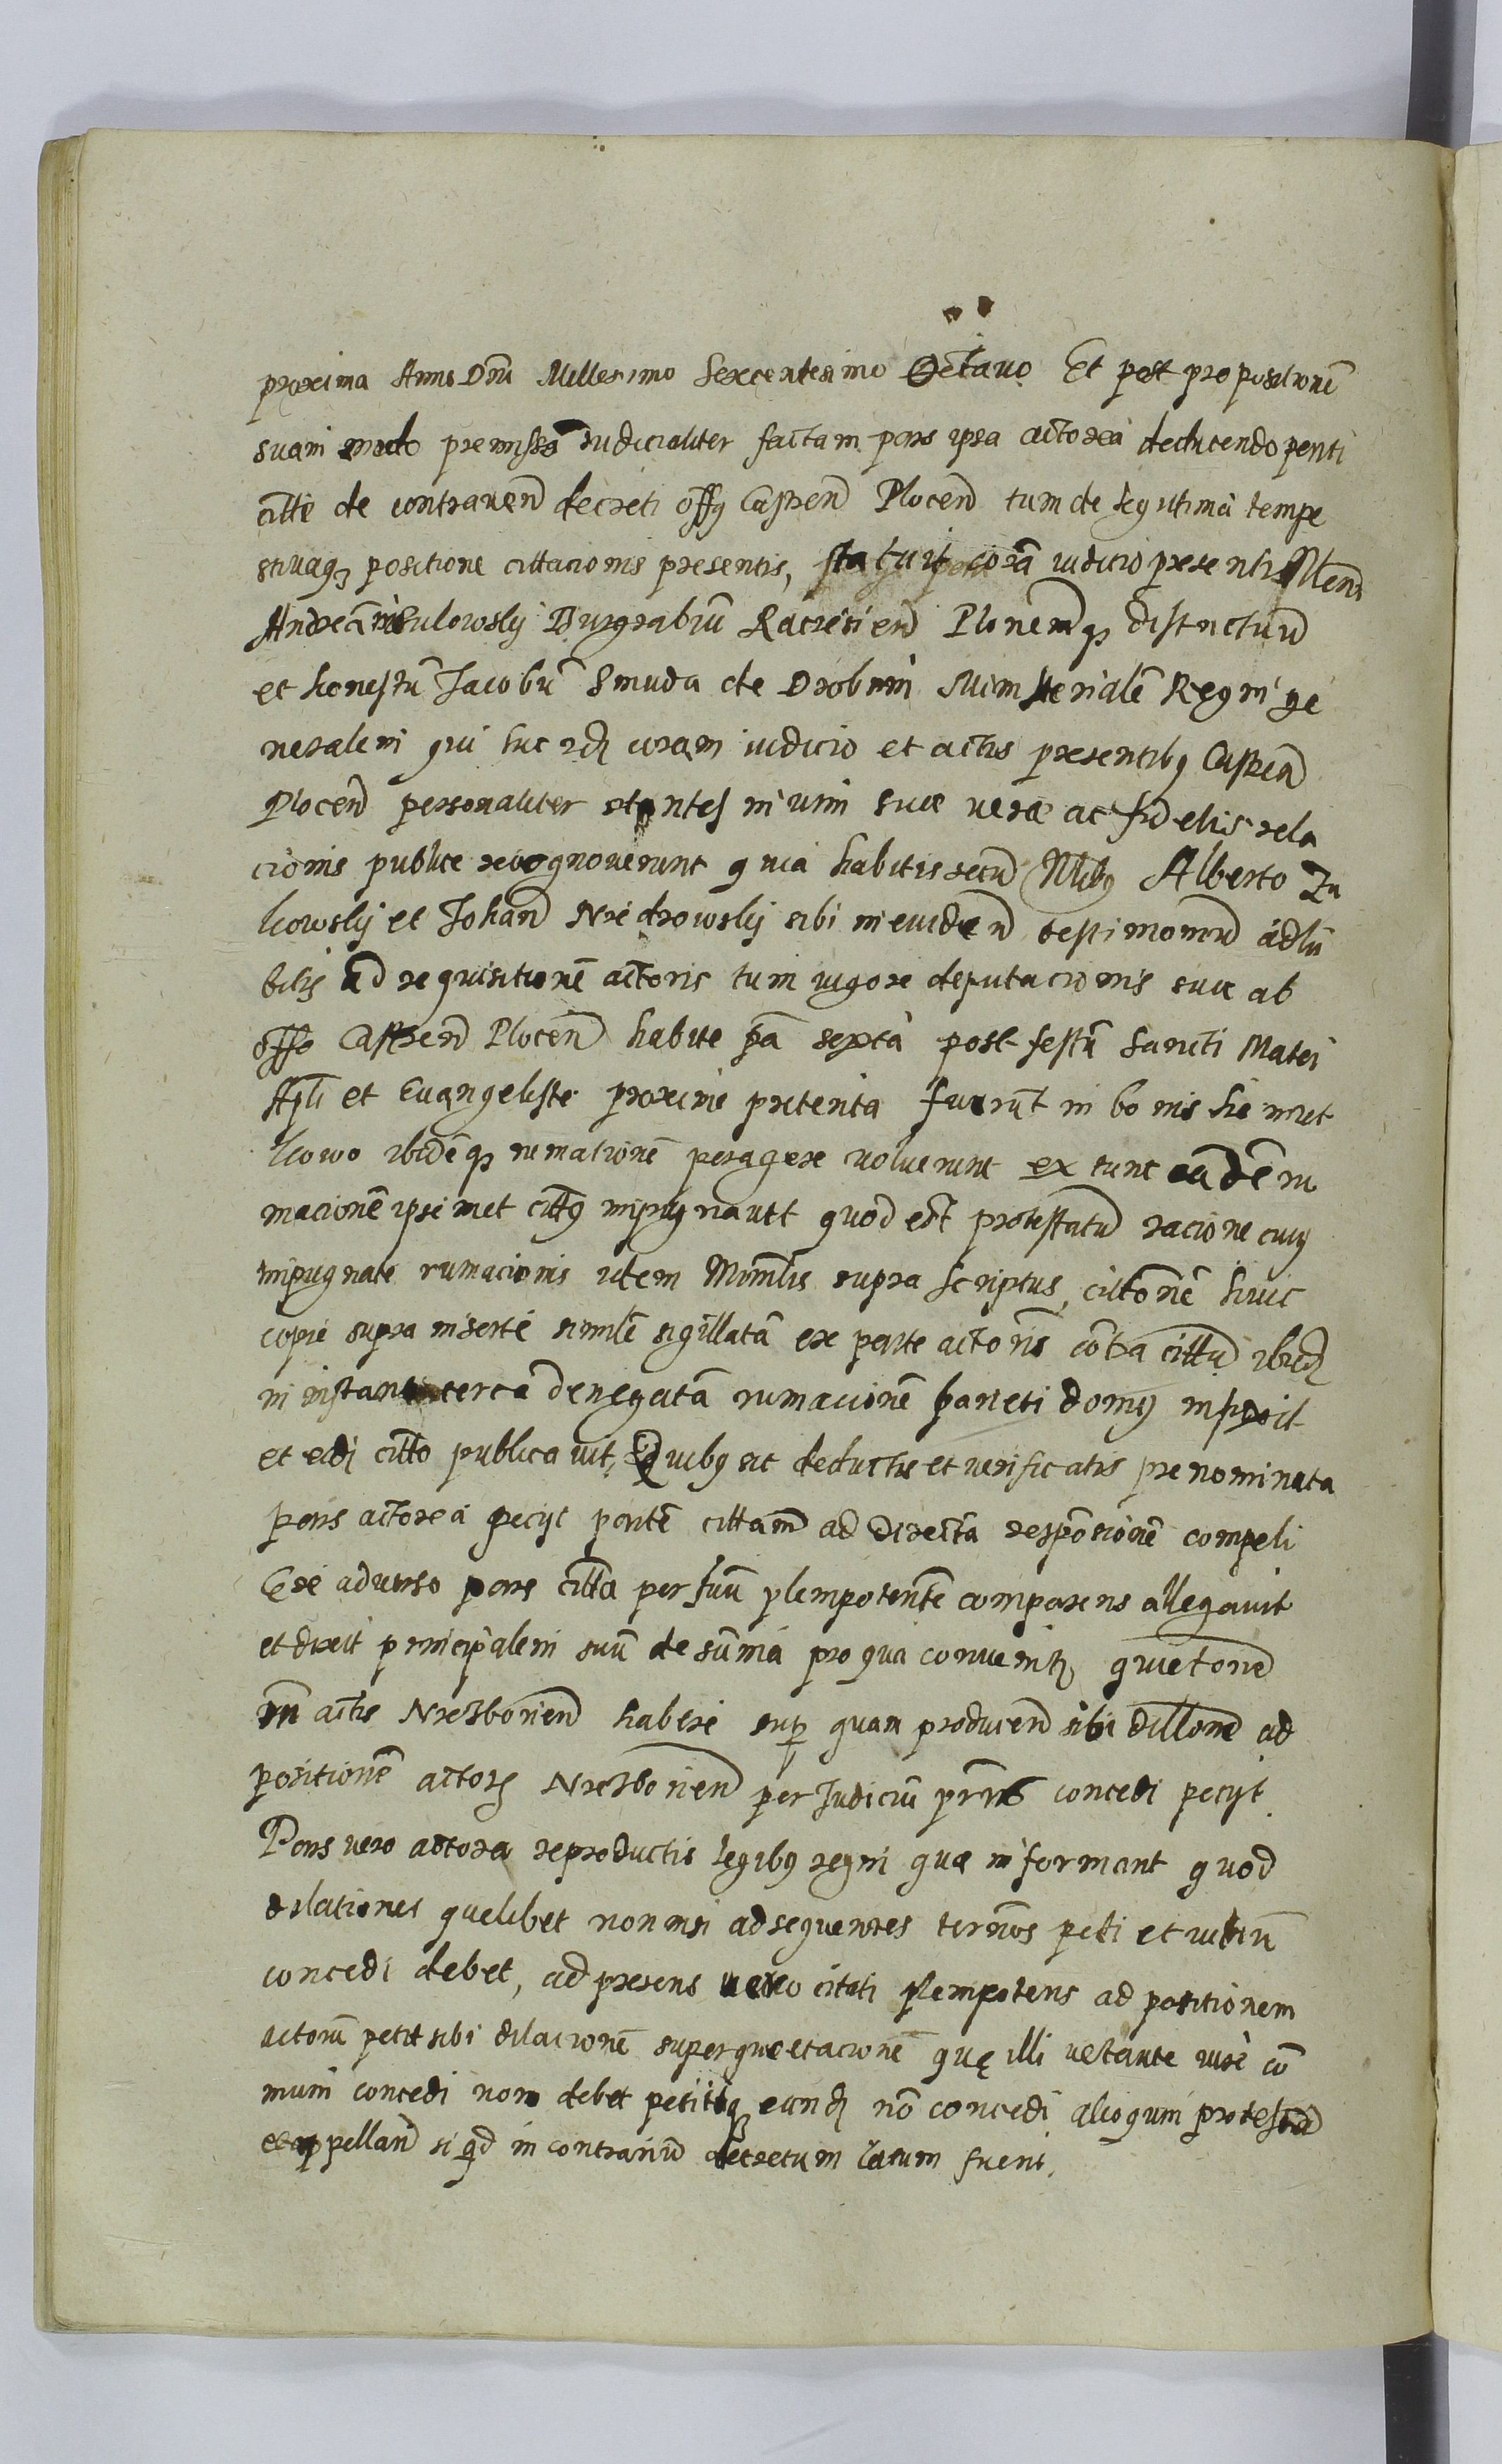 proxima Anno Dni Millesimo Sexcentesimo Octauo Et post propositionē
suam modo premisso iudicialiter factam pars ipsa actorea deducendo parti
citte de contrauen̄ decreti offy Castren̄ Plocen̄ tum de legitima tempe
stiuaq3 positione cittacionis presentis, statuit corā iudicio presenti
Andreā Sulowsky Burgrabiū Raciezien̄ Plonen̄q3 districtuū
et honestū Jacobū Smuda de Drobnin Ministerialē Regni ge
neralem qui huc ad coram iudicio et actis presentibq Castren̄
Plocen̄ personaliter stantes in vim suæ veræ ac fidelis rela
cionis publice recognouerunt quia habitis secū Nlibq Alberto Zu
kowsky et Johan̄ Niedrowsky sibi in euiden̄ testimoniū adhi
bitis ad requisitionē actoris tum vigore deputacionis suæ ab
offo Castren̄ Plocen̄ habite fā sexta post festū Sancti Matei
Apli et Euangeliste proxime preterita fuerūt in bonis
kowo ibidēq3 rumationē peragere voluerunt ex tunc eādē ru
macionē ipsemet cittq impugnauit quod est protestatū racione cuiq
impugnate rumacionis idem Minrlis supra scriptus, cittonē huic
copie supra inserte similē sigillatā ex parte actoris cōtra cittū ibid
in instanti circa denegatā rumacionē parieti domq inposuit
et eid citto publicauit, Quibq sic deductis et verificatis prenominata
pars actorea petiit partē cittam ad directā responsionē compeli
Ex aduerso pars citta per suū plenipotentē comparens allegauit
et dixit principalem suū de summa pro qua conuenit quietonē
in actis Nieszborien̄ habere sup quam producen̄ sibi dillonē ad
positionē actor Nieszborien̄ per Judiciū prns concedi petyt
Pars vero actorea reproductis legibq regni quæ informant quod
dilationes quelibet non nisi ad sequentes terminos peti et
concedi debet, ad presens vero citati plenipotens ad positionem
actorū petit sibi dilacionē super quietacionē quę illi vetante iure cō
muni concedi non debet petiitq3 eand nō concedi alioquin protestād
et appelland si qd in contrariū decretum latum fuerit.